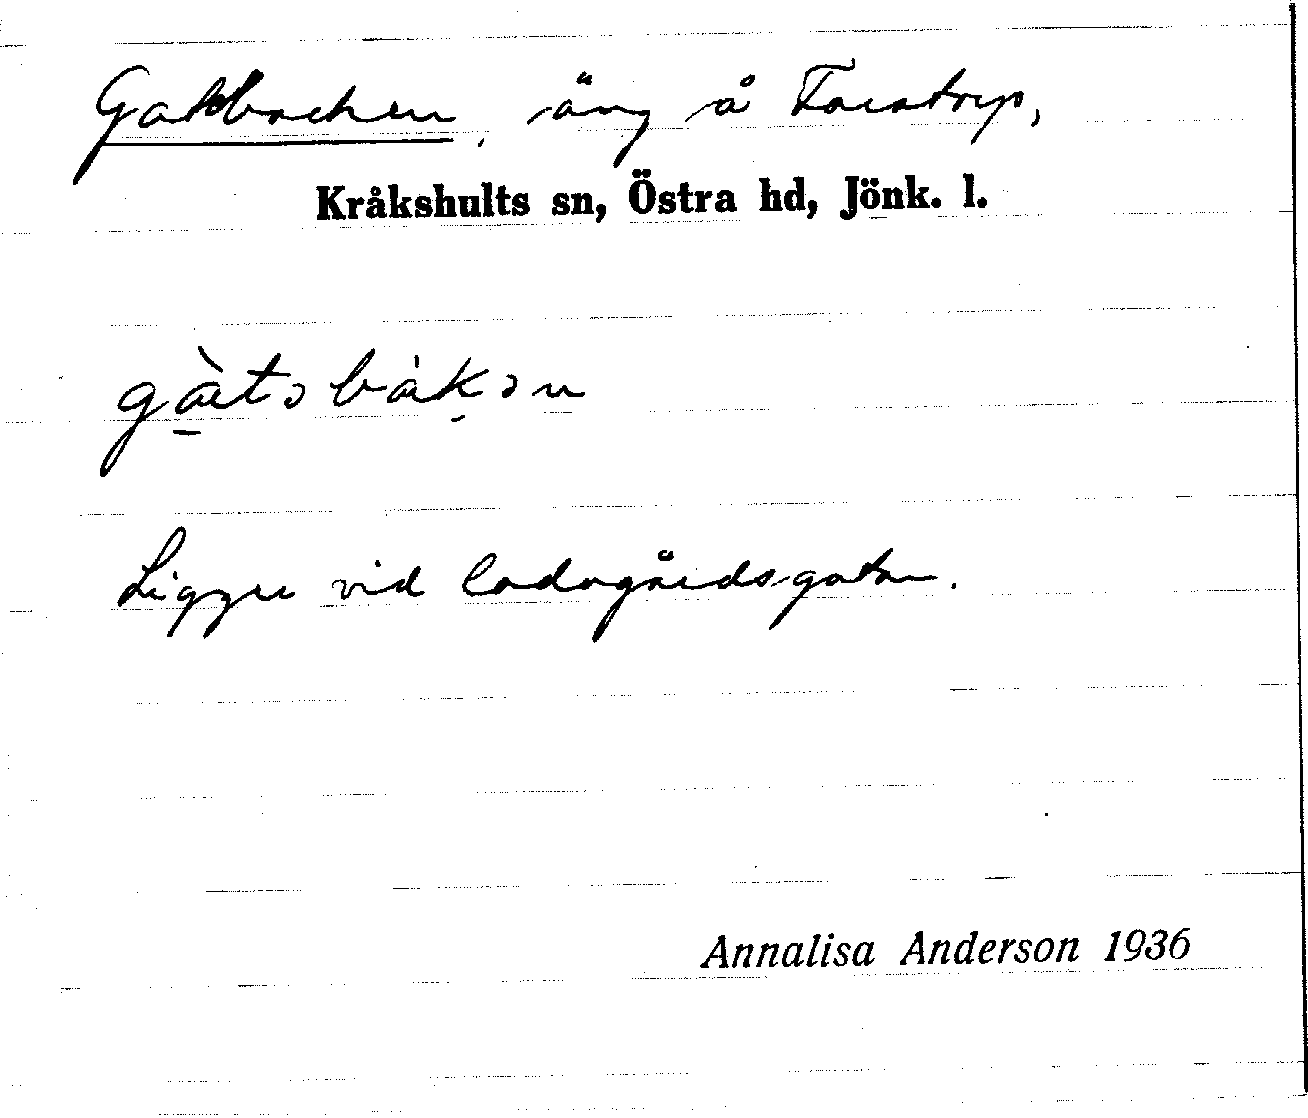 Gatbacken, äng å Farstorp,
Kråkshults sn, Östra hd, Jönk. l.
Ligger vid ladugårdsgatan.
Annalisa Anderson 1936